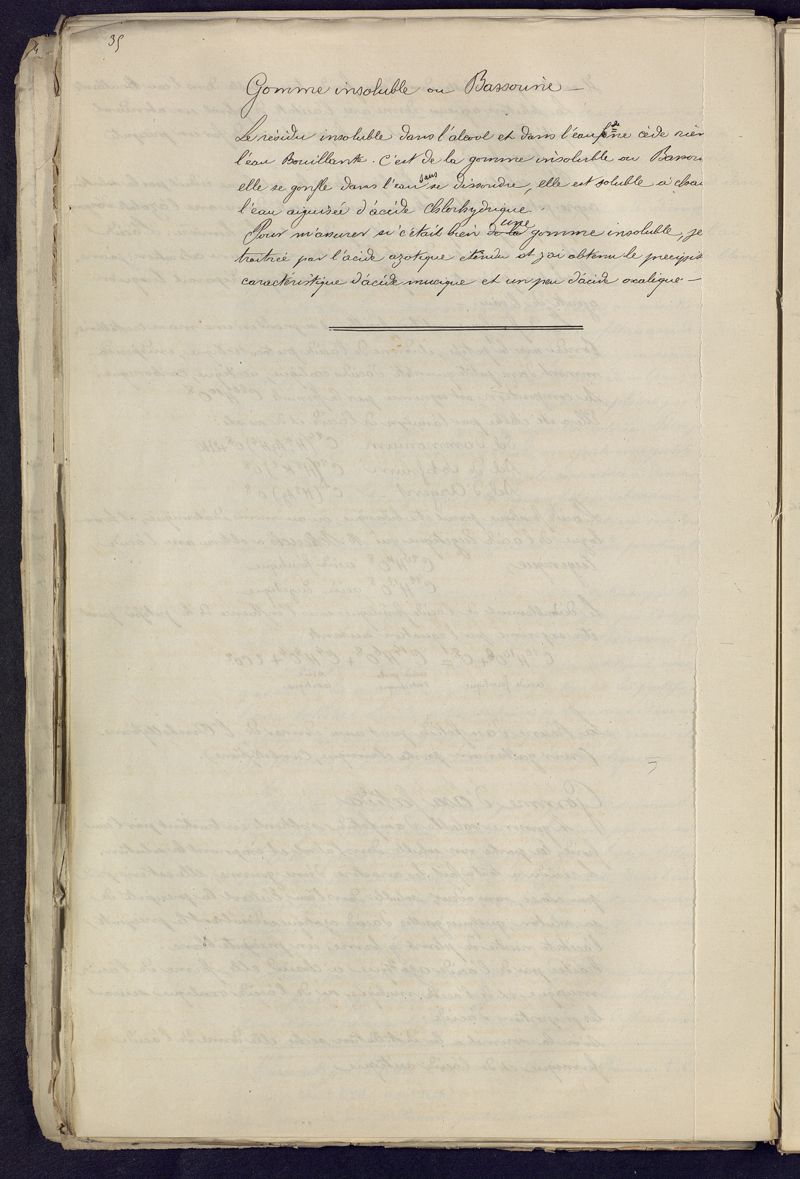 35
Gomme insoluble ou Bassorine —
Le résidu insoluble dans l'alcool et dans l'eau ne cède rien
l'eau Bouillante. C'est de la gomme insoluble ou Bassor
elle se gonfle dans l'eau sans se dissoudre, elle est soluble à chau
l'eau aiguisée d'acide chlorhydrique.
Pour m'assurer si c'était bien de la gomme insoluble, je
traitée par l'acide azotique étendu et j'ai obtenu le précipit
caractéristique d'acide mucique et un peu d'acide oxalique —